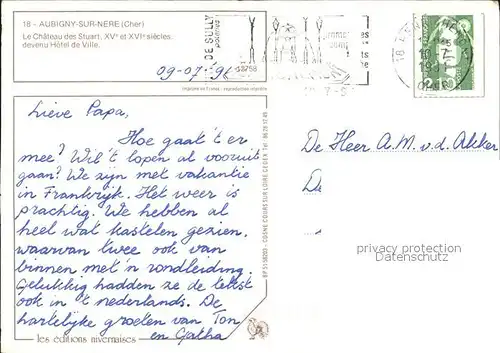 18 - AUBIGNY-SUR-NERE (Cher)
Le Château des Stuart, XVe et XVIe siècles
devenu Hôtel de Ville.
09-07-'91
Imprimé en France - reproduction interdite
Lieve Papa,
Hoe gaat 't er
mee? Wil 't lopen al vooruit
gaan? We zijn met vakantie
in Frankrijk. Het weer is
prachtig. We hebben al
heel wat kastelen gezien,
waarvan twee ook van
binnen met 'n rondleiding.
Gelukkig hadden ze de tekst
ook in 't nederlands. De
hartelijke groeten van Ton
en Gatha
les éditions nivernaises
DE SULLY
18
De Heer A.M. v.d. Akker
De
privacy protection
Datenschutz